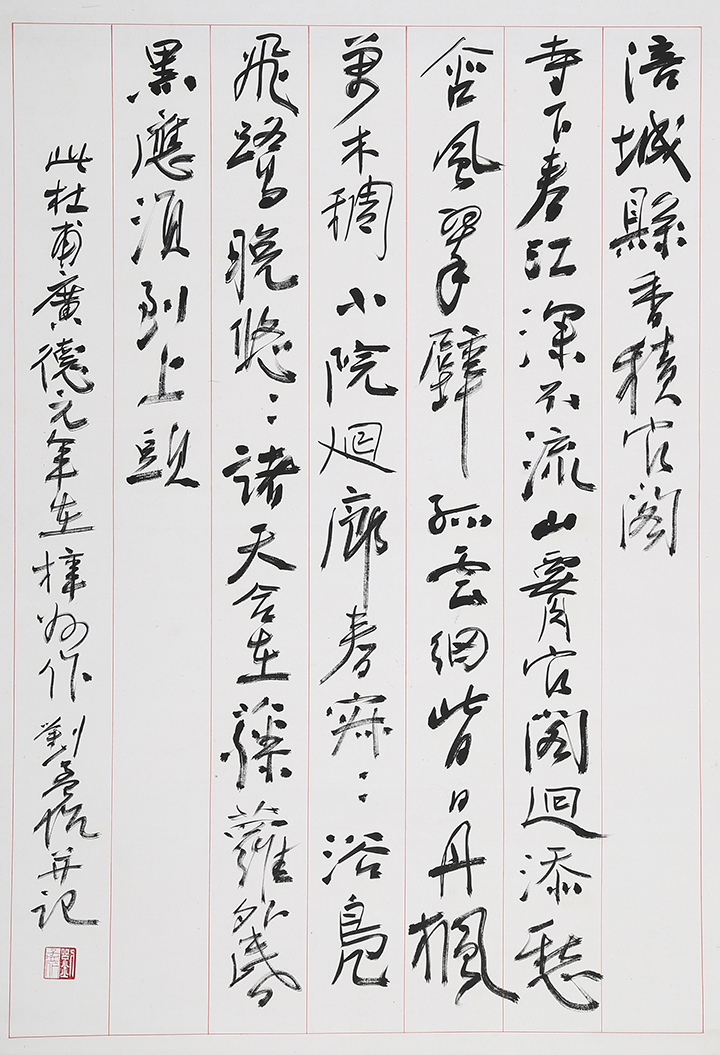 涪城縣香積官閣
寺下春江深不流山腰官閣迥添愁
含風翠壁孤雲細背日丹楓
萬木稠小院迴廊春寂〻浴鳧
飛鷺晚悠〻諸天合在藤蘿外昏
黑應須到上頭
此杜甫廣德元年在梓州作 劉 并记